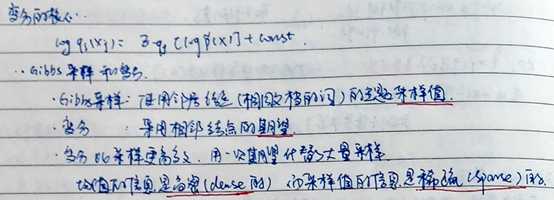 变分的核心.
log q_j(x_j) = E_{-q_j} [log p̃(x)] + const.
∴ Gibbs采样和变分.
· Gibbs采样: 使用邻居结点(相同文档的词)的主题采样值.
· 变分 : 采用相邻结点的期望.
· 变分比采样更高效. 用一次期望代替了大量采样
均值的信息是高密(dense的) 而采样值的信息是稀疏(sparse)的.